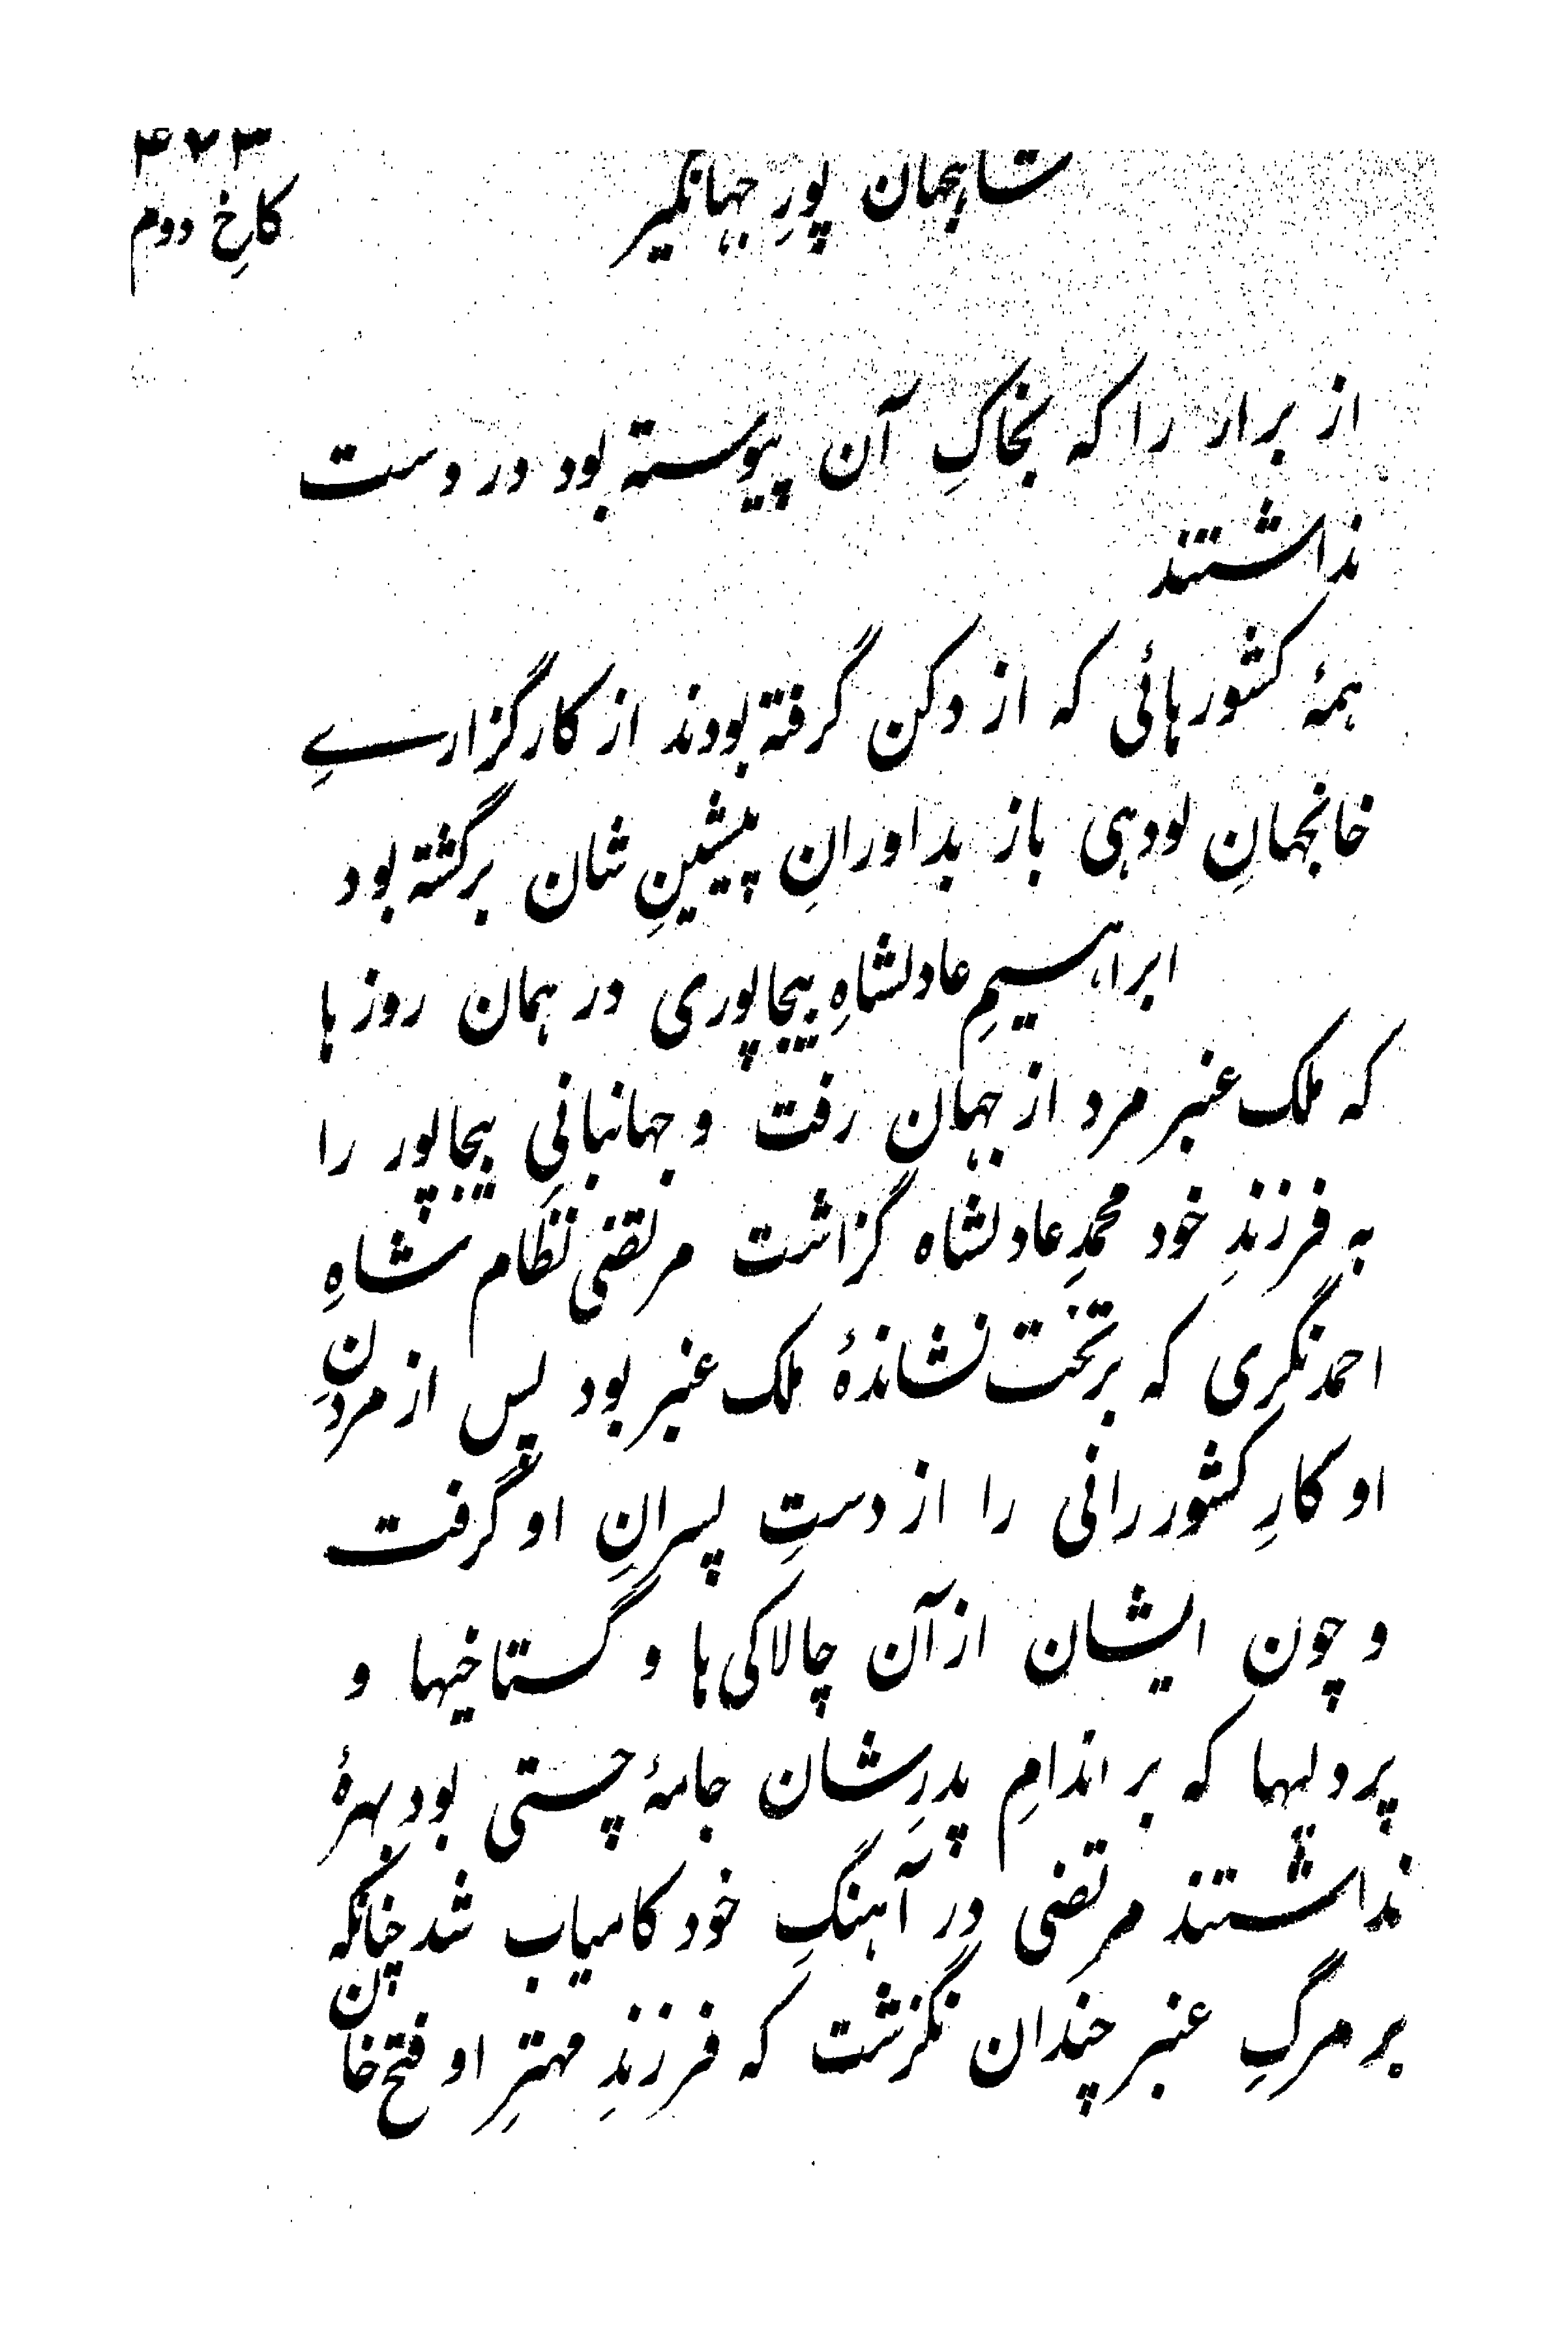 ۴۷۳
شاهجهان پورِ جهانگیر
کاخِ دوم
از برار را که بخاکِ آن پیوسته بود در دست
نداشتند
همهٔ کشورهائی که از دکن گرفته بودند از کارگزاریِ
خانجهانِ لودہی باز بداورانِ پیشینِ شان برگشته بود
ابراہیمِ عادلشاهِ بیجاپوری در ہمان روزہا
که ملک عنبر مرد از جہان رفت و جہانبانیِ بیجاپور را
به فرزندِ خود محمدِ عادلشاه گزاشت مرتضی نظام شاهِ
احمدنگری که بر تخت نشاندهٔ ملک عنبر بود پس از مردنِ
او کارِ کشوررانی را از دستِ پسرانِ او گرفت
و چون ایشان از آن چالاکی ہا و گستاخیہا و
پردلیہا که بر اندامِ پدرِ شان جامهٔ چستی بود بہرهٔ
نداشتند مرتضی در آہنگِ خود کامیاب شد چنانکه
بر مرگِ عنبر چندان نگزشت که فرزندِ مہترِ او فتح خان